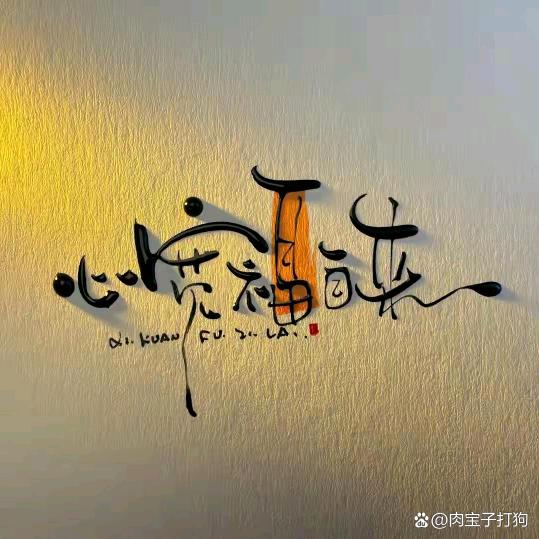 心宽福自来
XI. KUAN FU. ZI. LA..
@肉宝子打狗